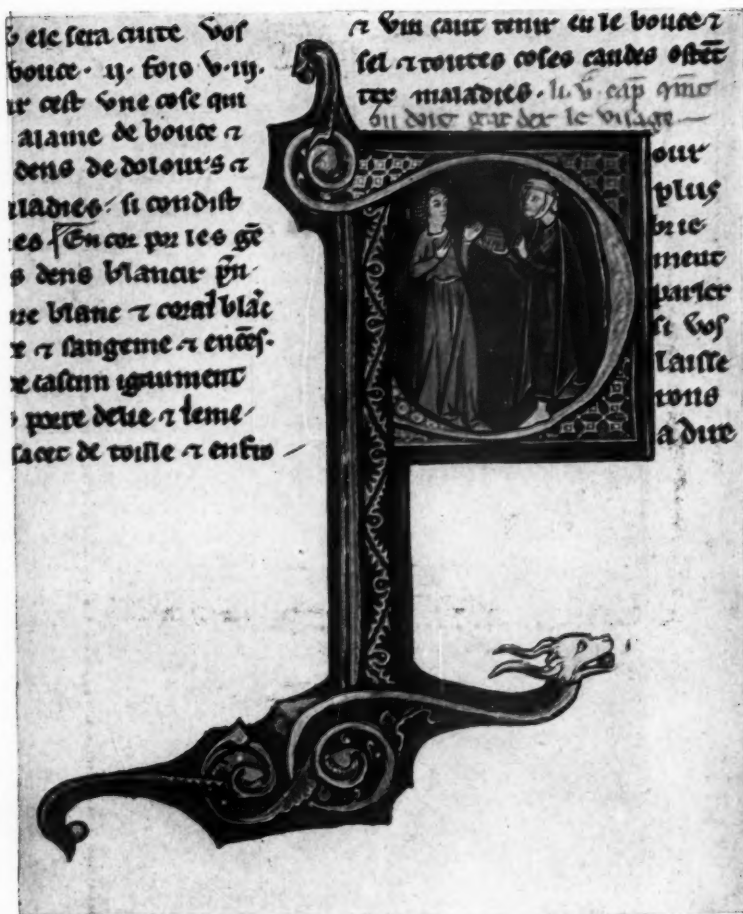 ele sera cuite vos
bouce · ij · fois v · iij ·
ur cest vne cose qui
alaine de bouce ⁊
dens de dolours ⁊
aladies · si condist
es ¶ Encor por les gē
s dens blancir p̄n
re blanc ⁊ coral blāc
⁊ sangeme ⁊ encēs ·
casten ignument
porre delie ⁊ leme
sacet de toille ⁊ enfro
⁊ vin caut tenir en le bouce ⁊
sel ⁊ toutes coses caudes ostēt
ter maladies · li · v · cap̄
on doit garder le visage
Pour
plus
brie
ment
parler
si vos
laisse
rons
a dire